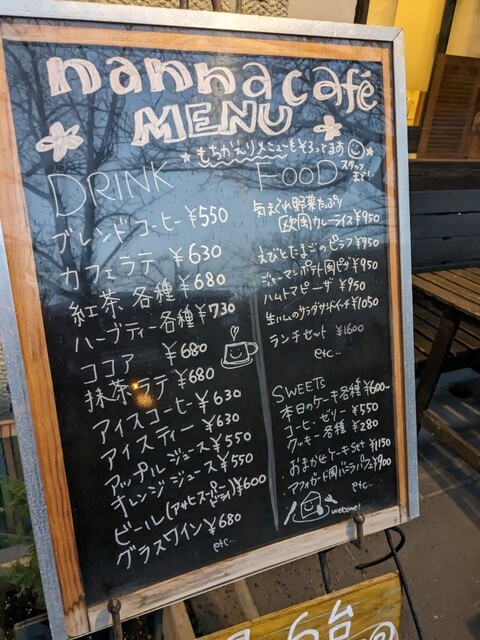 nanna café
MENU
★もちかえりメニューもそろってます★
DRINK
ブレンドコーヒー ¥550
カフェラテ ¥630
紅茶 各種 ¥680
ハーブティー各種 ¥730
ココア ¥680
抹茶ラテ ¥680
アイスコーヒー ¥630
アイスティー ¥630
アップルジュース ¥550
オレンジジュース ¥550
ビール(アサヒスーパードライ) ¥600
グラスワイン ¥680
etc…
FOOD スタッフまで!
気まぐれ野菜たっぷり
欧風カレーライス ¥950
えびとたまごのピラフ ¥950
ジャーマンポテト風ピザ ¥950
ハムトマピーザ ¥950
生ハムのサラダサンドイッチ ¥1050
ランチセット ¥1600
etc…
SWEETS
本日のケーキ各種 ¥600~
コーヒーゼリー ¥550
クッキー各種 ¥280
おまかせケーキset ¥1150
アフォガード風バニラパフェ ¥900
etc…
welcome!